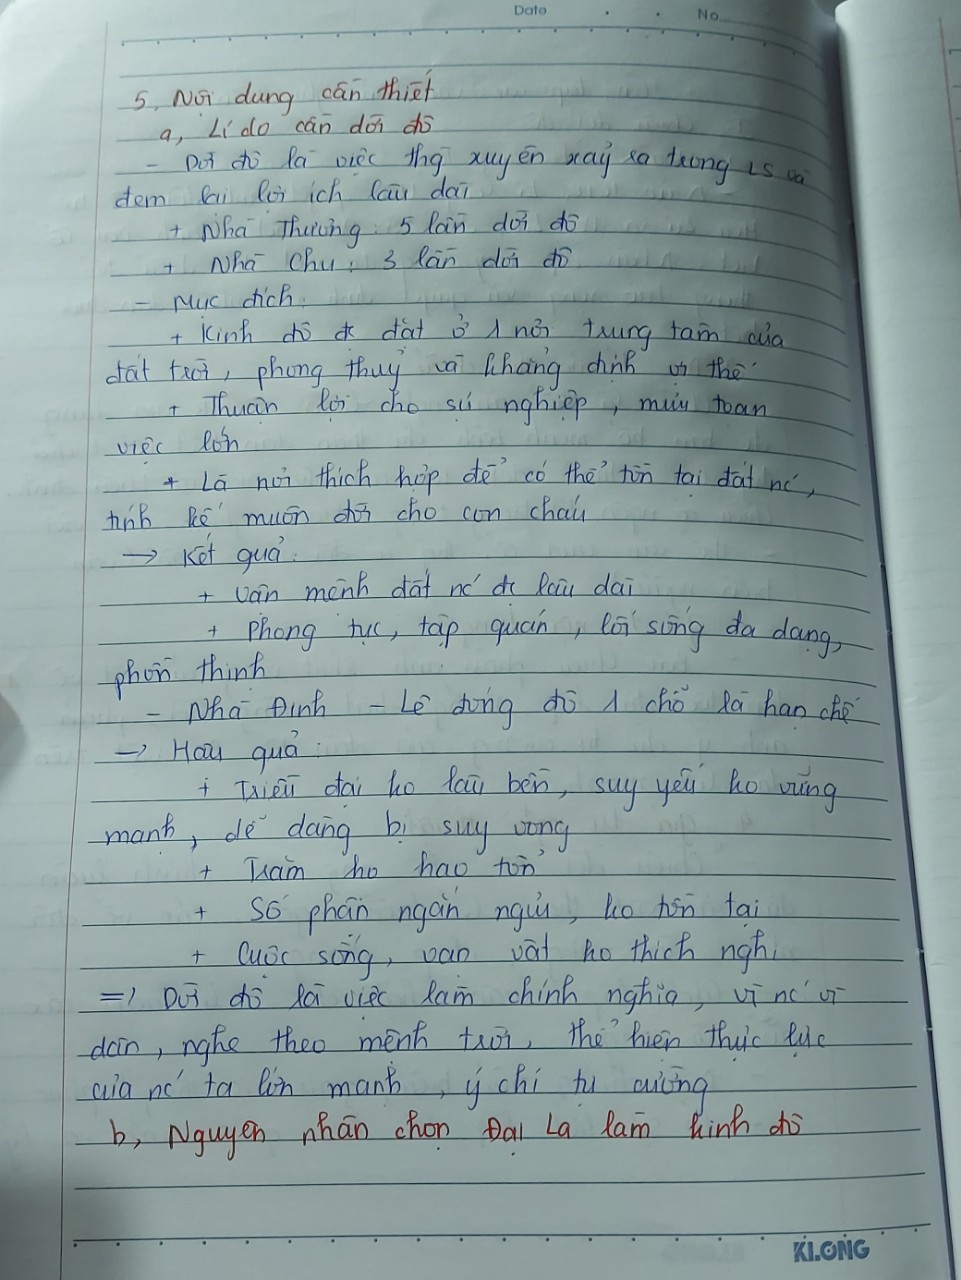 Date No
5, Nội dung cần thiết
a, Lí do cần dời đô
- Dời đô là việc thg xuyên xảy ra trong LS và
đem lại lợi ích lâu dài
+ Nhà Thương: 5 lần dời đô
+ Nhà Chu: 3 lần dời đô
- Mục đích:
+ Kinh đô đc đặt ở 1 nơi trung tâm của
đất trời, phong thuỷ và khẳng định vị thế
+ Thuận lợi cho sự nghiệp, mưu toan
việc lớn
+ Là nơi thích hợp để có thể tồn tại đất nc',
tính kế muôn đời cho con cháu
→ Kết quả:
+ Vận mệnh đất nc' đc lâu dài
+ Phong tục, tập quán, lối sống đa dạng,
phồn thịnh
- Nhà Đinh - Lê đóng đô 1 chỗ là hạn chế
→ Hậu quả:
+ Triều đại ko lâu bền, suy yếu ko vững
mạnh, dễ dàng bị suy vong
+ Trăm họ hao tổn
+ Số phận ngắn ngủi, ko tồn tại
+ Cuộc sống, vạn vật ko thích nghi
=> Dời đô là việc làm chính nghĩa, vì nc' vì
dân, nghe theo mệnh trời, thể hiện thực lực
của nc' ta lớn mạnh, ý chí tự cường
b, Nguyên nhân chọn Đại La làm kinh đô
KLONG